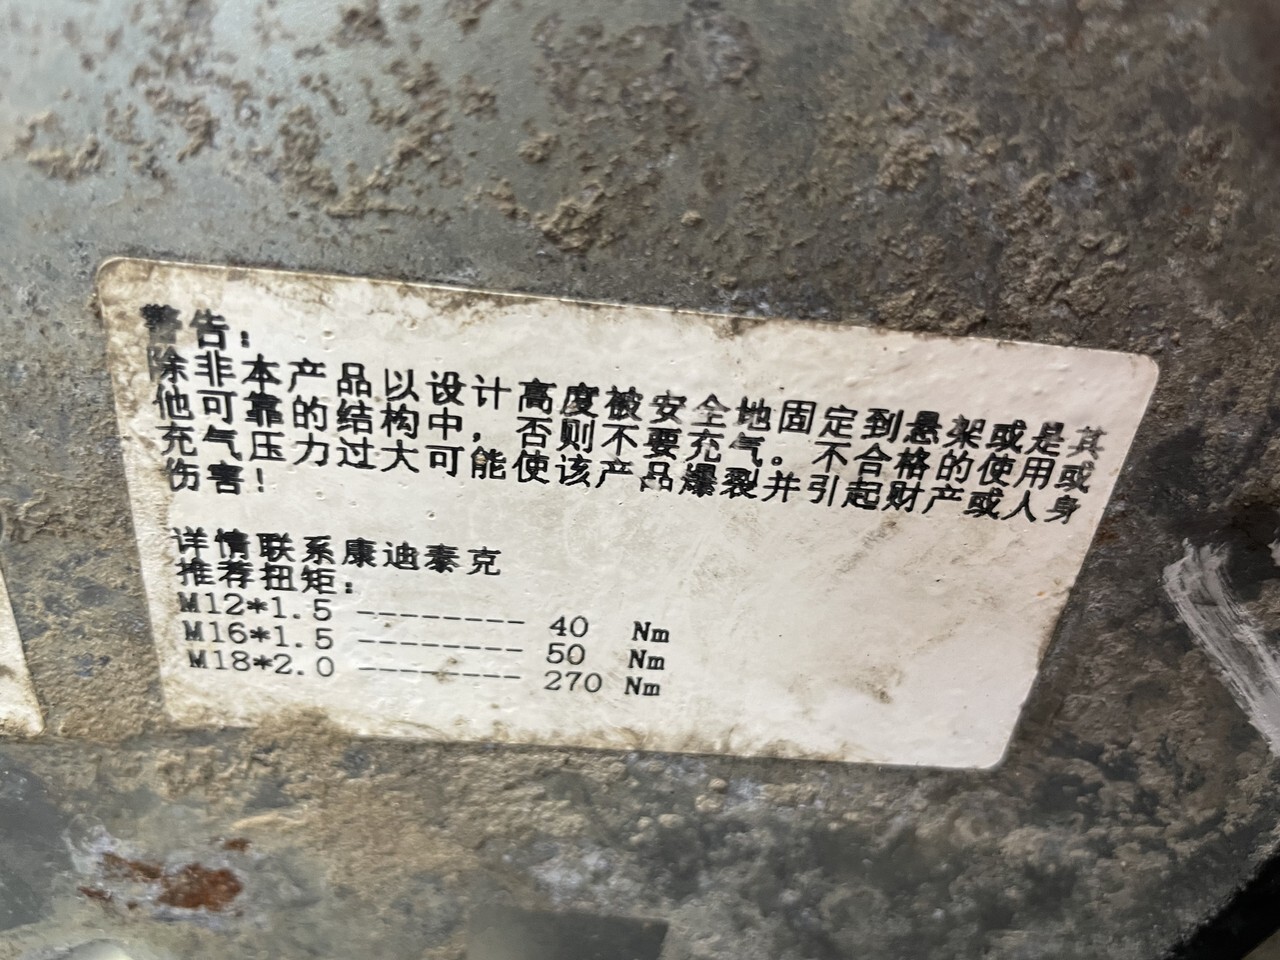 警告：
除非本产品以设计高度被安全地固定到悬架或是其
他可靠的结构中，否则不要充气。不合格的使用或
充气压力过大可能使该产品爆裂并引起财产或人身
伤害！
详情联系康迪泰克
推荐扭矩：
M12*1.5 -------- 40 Nm
M16*1.5 -------- 50 Nm
M18*2.0 -------- 270 Nm